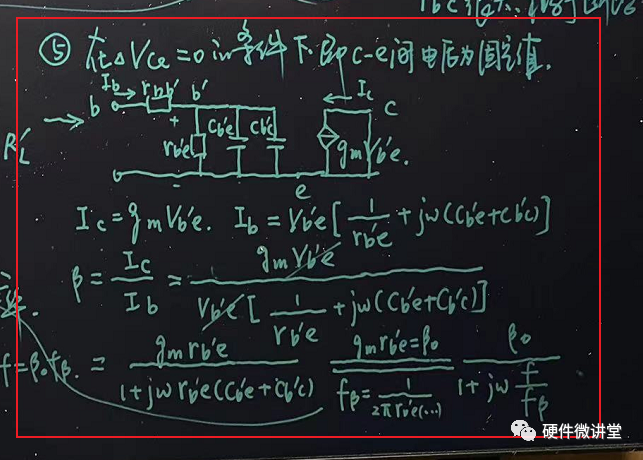 ⑤ 在△Vce=0的条件下.即c-e间电压为固定值.
Ib
rbb'
b
b'
Ic
c
R'L
+
rb'e
Cb'e
Cb'c
gmVb'e.
-
e
Ic=gmVb'e. Ib=Vb'e[1/rb'e+jw(Cb'e+Cb'c)]
β=Ic/Ib=gmVb'e/Vb'e[1/rb'e+jw(Cb'e+Cb'c)]
=gmrb'e/1+jwrb'e(Cb'e+Cb'c) gmrb'e=β0/fβ=1/2πrb'e(...) β0/1+jw f/fβ
f=β0fβ.
硬件微讲堂